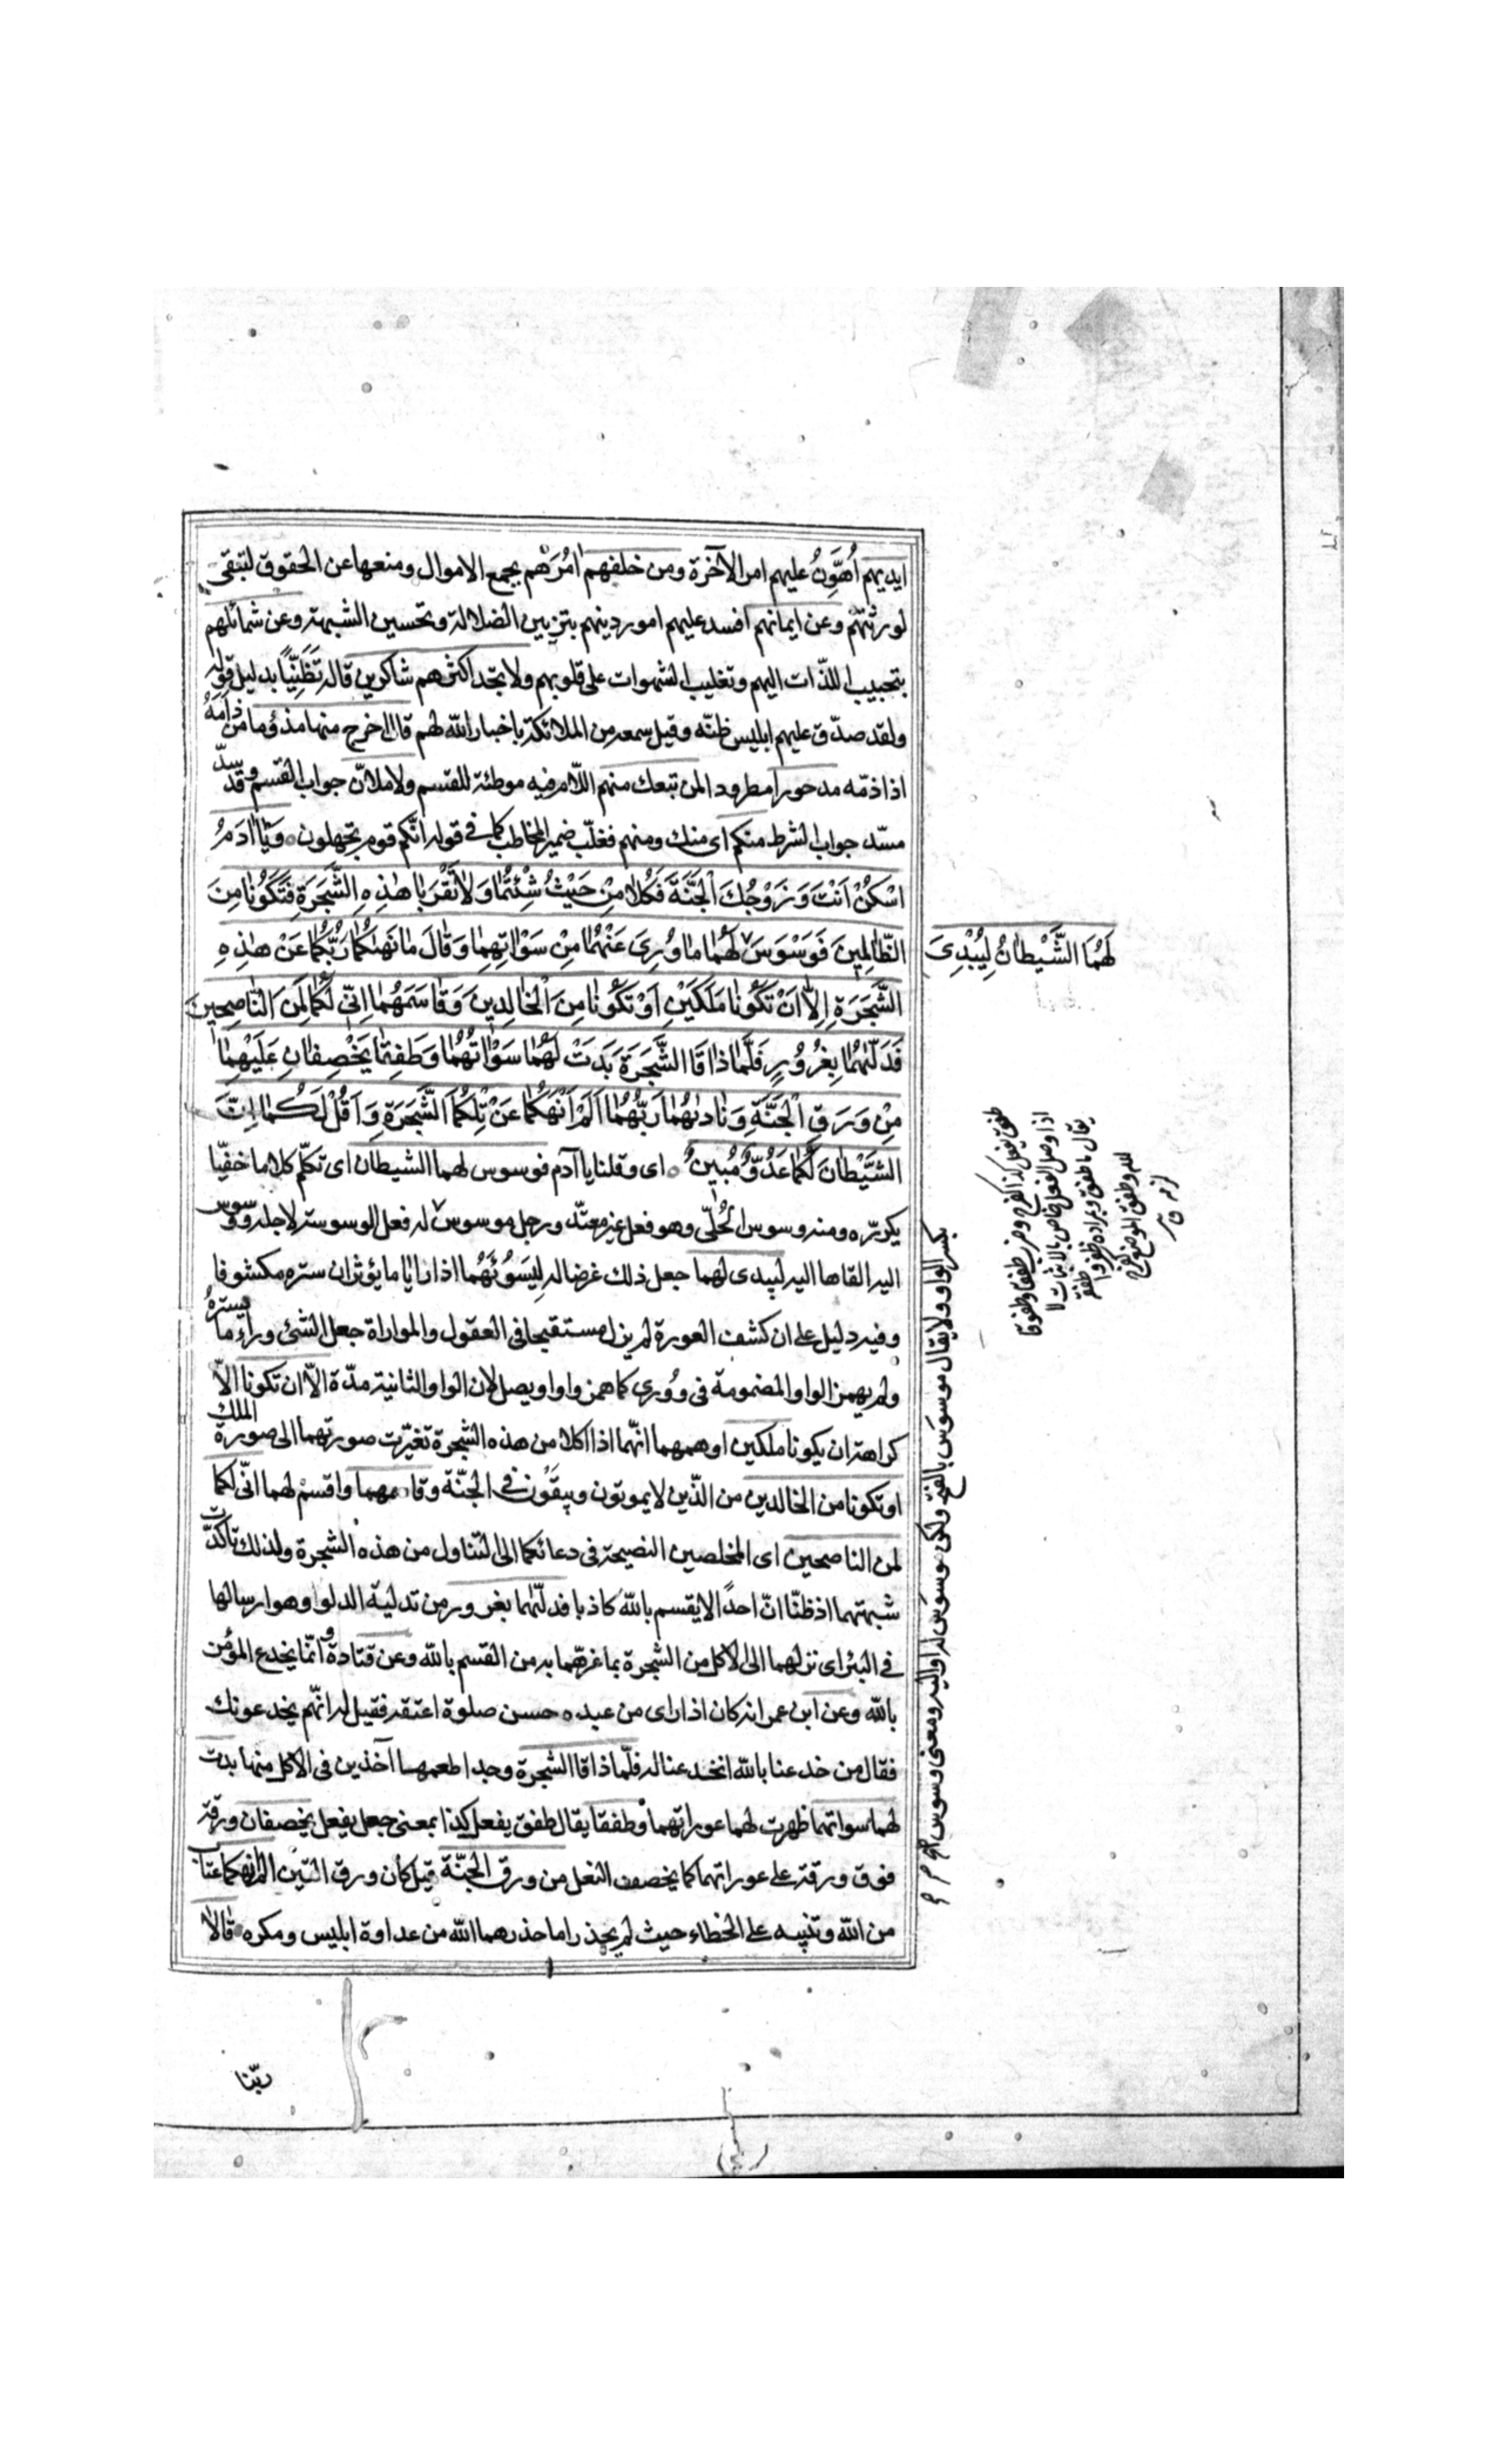 ايديهم أُهَوِّنُ عليهم امر الآخرة ومن خلفهم اٰمُرُهُم بجمع الاموال ومنعها عن الحقوق لتبقى
لورثتهم وعن ايمانهم افسد عليهم امور دينهم بتزيين الضلالة وتحسين الشبهة وعن شمائلهم
بتحبيب اللذّات اليهم وتغليب الشهوات على قلوبهم ولا تجد اكثرهم شاكرين قاله تَظَنِّيًا بدليل قوله
ولقد صدّق عليهم ابليس ظنّه وقيل سمعه من الملائكة باخبار الله لهم قال اخرج منها مذؤما من ذَأَمَهُ
اذا ذمّه مدحورا مطرودا لمن تبعك منهم اللام فيه موطئة للقسم ولاملانّ جواب القسم وقد سدّ
مسدّ جواب الشرط منكم اى منك ومنهم فغلّب ضمير المخاطب كما فى قوله انّكم قوم تجهلون وَيَا اٰدَمُ
اسْكُنْ اَنْتَ وَزَوْجُكَ الْجَنَّةَ فَكُلَا مِنْ حَيْثُ شِئْتُمَا وَلَا تَقْرَبَا هٰذِهِ الشَّجَرَةَ فَتَكُونَا مِنَ
الظَّالِمِينَ فَوَسْوَسَ لَهُمَا مَا وُرِىَ عَنْهُمَا مِنْ سَوْاٰتِهِمَا وَقَالَ مَا نَهٰكُمَا رَبُّكُمَا عَنْ هٰذِهِ
لَهُمَا الشَّيْطَانُ لِيُبْدِىَ
الشَّجَرَةِ اِلَّا اَنْ تَكُونَا مَلَكَيْنِ اَوْ تَكُونَا مِنَ الْخَالِدِينَ وَقَاسَمَهُمَا اِنِّى لَكُمَا لَمِنَ النَّاصِحِينَ
فَدَلّٰهُمَا بِغُرُورٍ فَلَمَّا ذَاقَا الشَّجَرَةَ بَدَتْ لَهُمَا سَوْاٰتُهُمَا وَطَفِقَا يَخْصِفَانِ عَلَيْهِمَا
مِنْ وَرَقِ الْجَنَّةِ وَنَادٰىهُمَا رَبُّهُمَا اَلَمْ اَنْهَكُمَا عَنْ تِلْكُمَا الشَّجَرَةِ وَاَقُلْ لَكُمَا اِنَّ
الشَّيْطَانَ لَكُمَا عَدُوٌّ مُبِينٌ اى وقلنا يا آدم فوسوس لهما الشيطان اى تكلّم كلاما خفيّا
يكرّره ومنه وسوس الحُلّى وهو فعل غير معتدّ ورجل موسوس له فعل الوسوسة لاجله ووسوس
اليه القاها اليه ليبدى لهما جعل ذلك غرضا له لِيَسُوْئَهُمَا اذا رايا ما يؤثران ستره مكشوفا
وفيه دليل على ان كشف العورة لم يزل مستقبحا فى العقول والمواراة جعل الشئ وراء ما يستره
ولم يهمز الواو المضمومة فى وُورى كما همز واو اويصل لان الواو الثانية مدّة الّا ان تكونا الّا
كراهة ان يكونا ملكين اوهمهما انّهما اذا اكلا من هذه الشجرة تغيّرت صورتهما الى صورة الملك
او تكونا من الخالدين من الذّين لا يموتون ويبقَون فى الجنّة وقاسمهما واقسم لهما انّى لكما
لمن الناصحين اى المخلصين النصيحة فى دعائكما الى التناول من هذه الشجرة ولذلك تاكّدت
شبهتهما اذ ظنّا انّ احدًا لا يقسم بالله كاذبا فدلّهما بغرور من تدلية الدلو وهو ارسالها
فى البئر اى نزلهما الى الاكل من الشجرة بما غرّهما به من القسم بالله وعن قتادة وانّما يخدع المؤمن
بالله وعن ابن عمر انه كان اذا راى من عبده حسن صلوة اعتقه فقيل له انّهم يخدعونك
فقال من خدعنا بالله انخدعنا له فلمّا ذاقا الشجرة وجدا طعمها آخذين فى الاكل منها بدت
لهما سواتهما ظهرت لهما عوراتهما وطفقا يقال طفق يفعل كذا بمعنى جعل يفعل يخصفان ورقة
فوق ورقة على عوراتهما كما يخصف النعل من ورق الجنّة قيل كان ورق التين الم انهكما عتاب
من الله وتنبيه على الخطاء حيث لم يحذرا ما حذرهما الله من عداوة ابليس ومكره قَالَا
بكسر الواو ولا يقال موسوَس بالفتح ولكن موسوَس له او اليه ومعنى وسوس
طفق يفعل كذا كفرح وضرب طفقا وطفوقا
اذا وصل الفعل خاص بالاثبات لا
يقال ما طفق
ربّنا